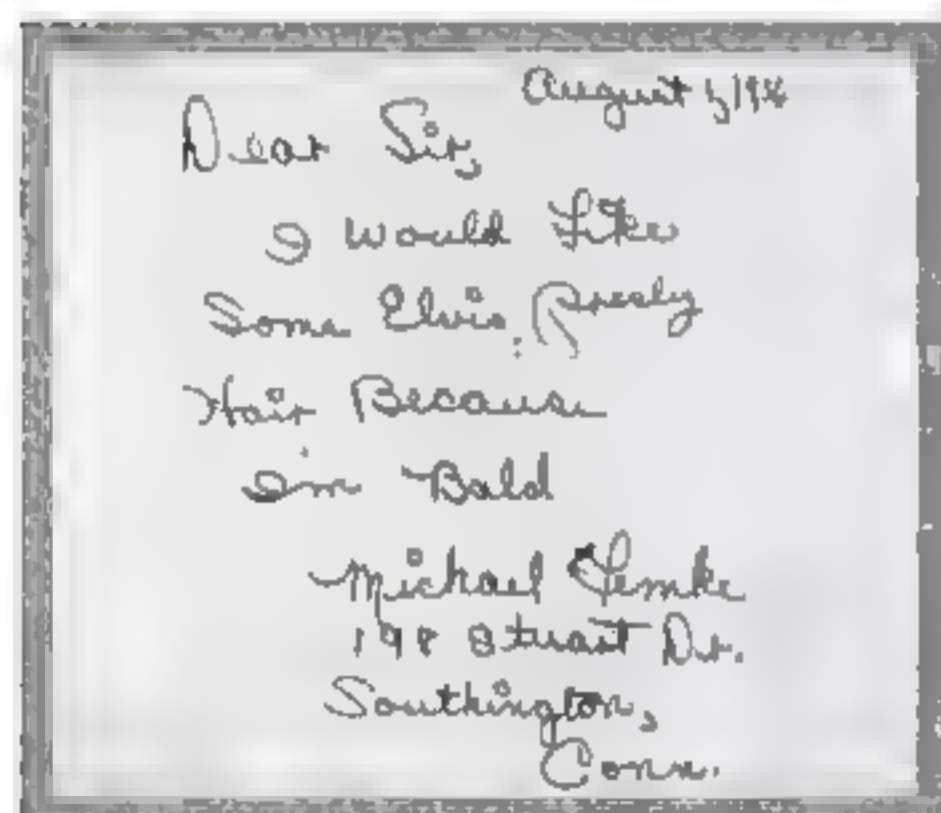 August 1, 1956
Dear Sir,
I Would Like
Some Elvis Presly
Hair Because
I'm Bald
Michael Lemke
198 Stuart Dr.
Southington,
Conn.